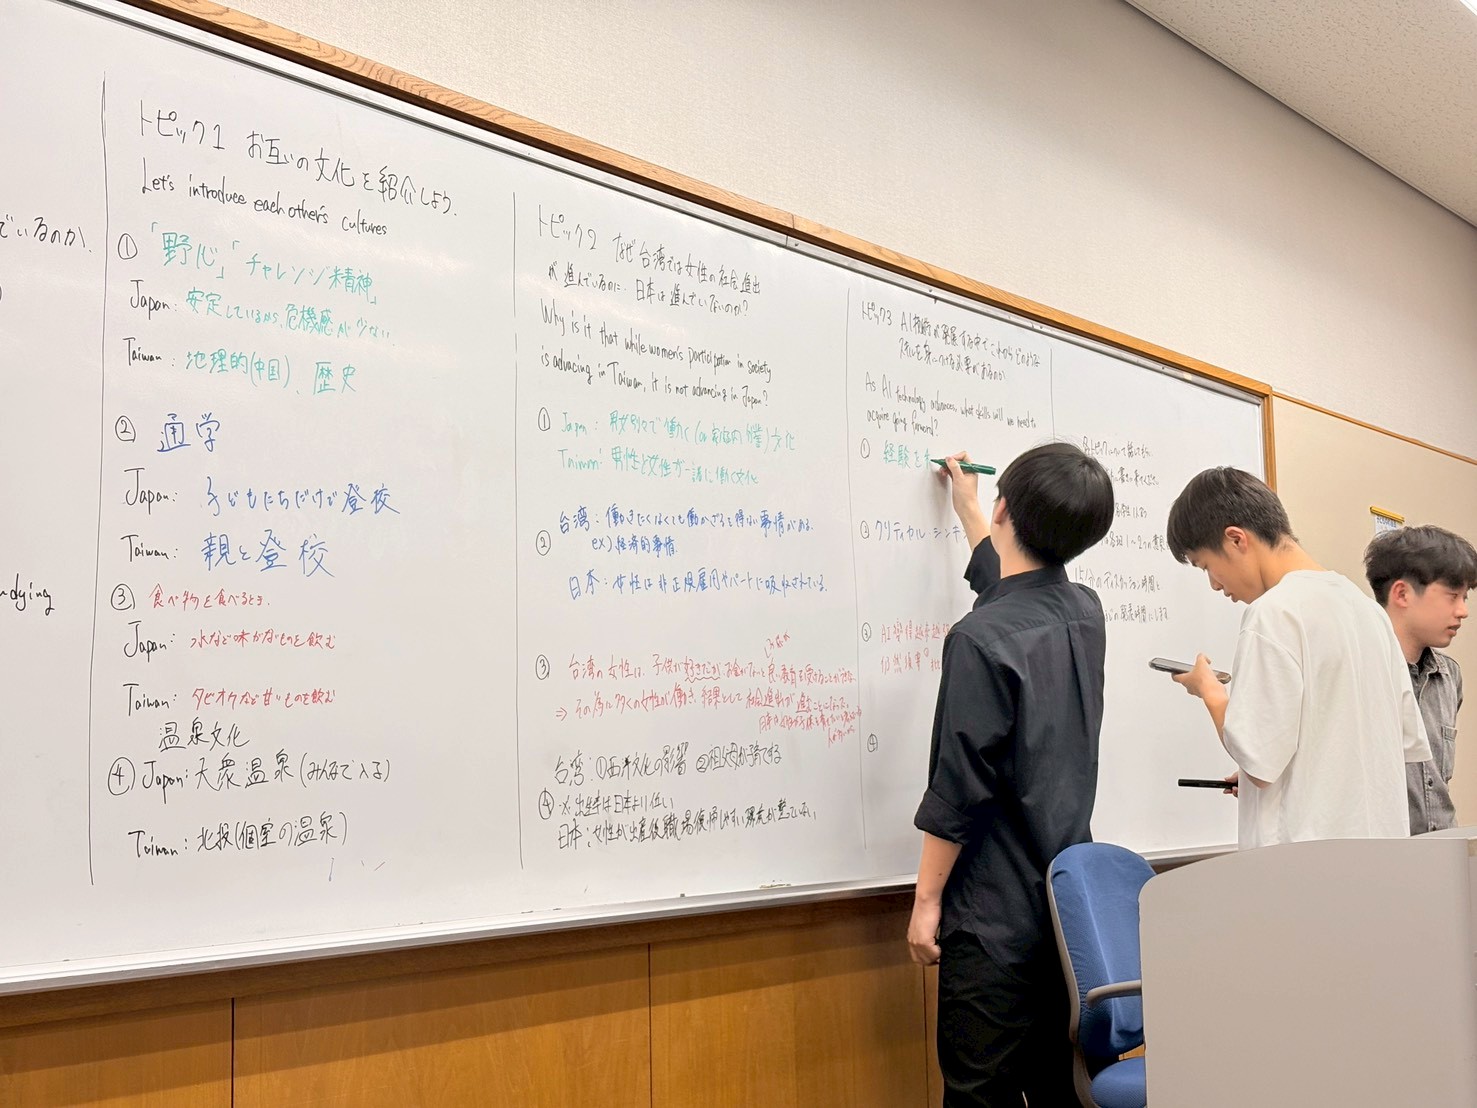 でいるのか.
udying
トピック1 お互いの文化を紹介しよう.
Let's introduce each other's cultures
① 「野心」「チャレンジ精神」
Japan: 安定しているから、危機感が少ない.
Taiwan: 地理的(中国)、歴史
② 通学
Japan: 子どもたちだけで登校
Taiwan: 親と登校
③ 食べ物を食べるとき.
Japan: 水など味がないものを飲む
Taiwan: タピオカなど甘いものを飲む
温泉文化
④ Japan: 大衆温泉(みんなで入る)
Taiwan: 北投(個室の温泉)
トピック2 なぜ台湾では女性の社会進出
が進んでいるのに、日本は進んでいないのか?
Why is it that while women's participation in society
is advacing in Taiwan, it is not advancing in Japan?
① Japan: 男女別々で働く(or 家庭内 分業)文化
Taiwan: 男性と女性が一緒に働く文化
② 台湾: 働きたくなくても働かざるを得ない事情がある.
ex) 経済的事情.
日本: 女性は非正規雇用やパートに吸収されている.
③ 台湾の女性は、子供が好きだから、お金がないと良い教育を受けることができない
⇒ その為に多くの女性が働き、結果として社会進出が進むことになった.
台湾: ①西洋文化の影響 ②祖父母が子育てする
④ ※出生率は日本より低い
日本: 女性が出産後職場復帰しやすい環境が整っていない
トピック3 AI技術が発展する中でこれからどのような
スキルを身につける必要があるのか
As AI technology advances, what skills will we need to
acquire going forward?
① 経験を
② クリティカル シンキン
③ AI
④
各トピックについて話し
1〜2つの意見
15分のディスカッション時間と
の発表時間にします